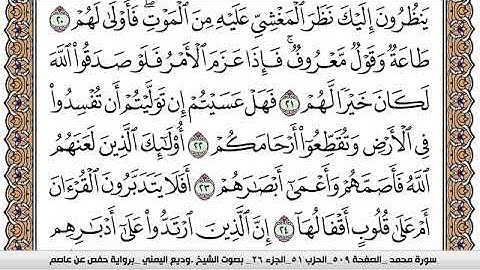 يَنظُرُونَ إِلَيْكَ نَظَرَ الْمَغْشِيِّ عَلَيْهِ مِنَ الْمَوْتِ ۖ فَأَوْلَىٰ لَهُمْ ٢٠
طَاعَةٌ وَقَوْلٌ مَّعْرُوفٌ ۚ فَإِذَا عَزَمَ الْأَمْرُ فَلَوْ صَدَقُوا اللَّهَ
لَكَانَ خَيْرًا لَّهُمْ ٢١ فَهَلْ عَسَيْتُمْ إِن تَوَلَّيْتُمْ أَن تُفْسِدُوا
فِي الْأَرْضِ وَتُقَطِّعُوا أَرْحَامَكُمْ ٢٢ أُولَٰئِكَ الَّذِينَ لَعَنَهُمُ
اللَّهُ فَأَصَمَّهُمْ وَأَعْمَىٰ أَبْصَارَهُمْ ٢٣ أَفَلَا يَتَدَبَّرُونَ الْقُرْءَانَ
أَمْ عَلَىٰ قُلُوبٍ أَقْفَالُهَا ٢٤ إِنَّ الَّذِينَ ارْتَدُّوا عَلَىٰ أَدْبَارِهِم
سورة محمد _الصفحة ٥٠٩_الحزب ٥١_الجزء ٢٦_ بصوت الشيخ .وديع اليمني _برواية حفص عن عاصم